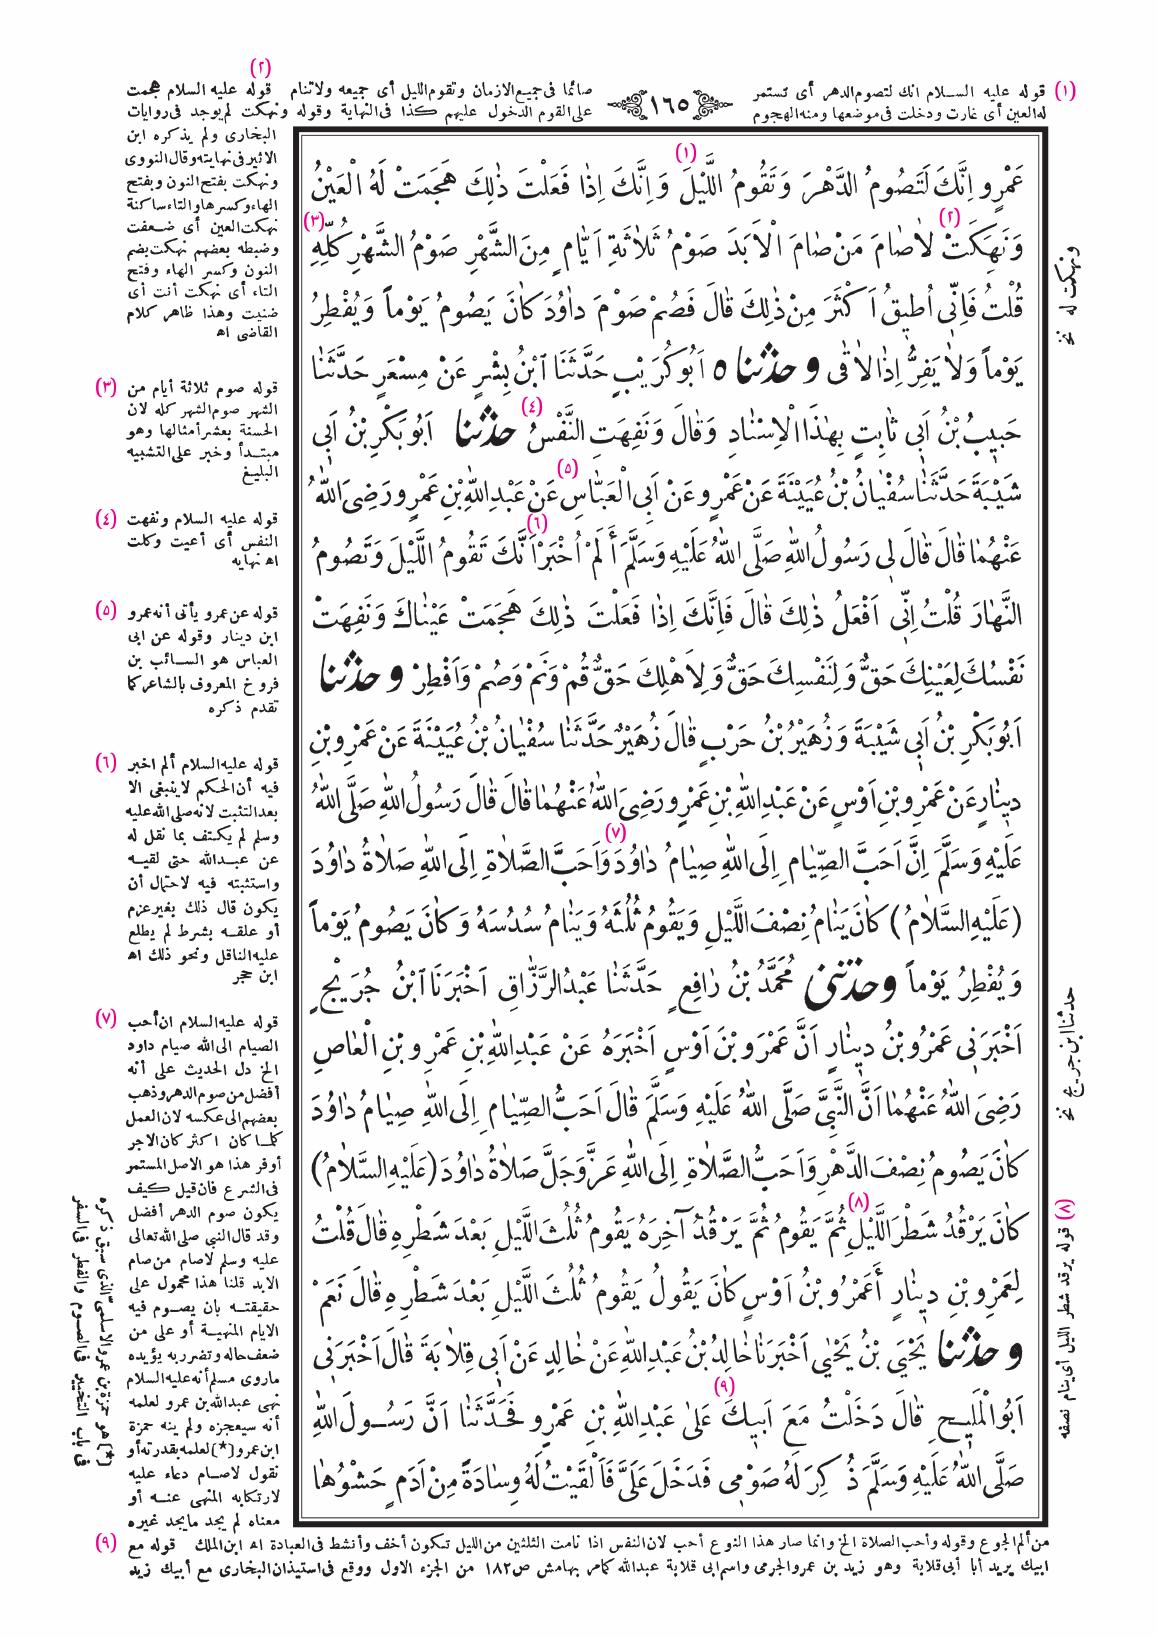 ١٦٥
(١) قوله عليه السلام انك لتصوم الدهر أى تستمر
صائما فى جميع الازمان وتقوم الليل أى جميعه ولاتنام
(٢) قوله عليه السلام هجمت
له العين أى غارت ودخلت فى موضعها ومنه الهجوم
على القوم الدخول عليهم كذا فى النهاية وقوله ونهكت لم يوجد فى روايات
البخارى ولم يذكره ابن
الاثير فى نهايته وقال النووى
ونهكت بفتح النون وبفتح
الهاء وكسرها والتاء ساكنة
نهكت العين أى ضعفت
وضبطه بعضهم نهكت بضم
النون وكسر الهاء وفتح
التاء أى نهكت أنت أى
ضنيت وهذا ظاهر كلام
القاضى اه
عَمْرٍو اِنَّكَ لَتَصُومُ الدَّهْرَ وَتَقُومُ اللَّيْلَ (١) وَاِنَّكَ اِذَا فَعَلْتَ ذٰلِكَ هَجَمَتْ لَهُ الْعَيْنُ
وَنَهِكَتْ (٢) لَاصَامَ مَنْ صَامَ الْاَبَدَ صَوْمُ ثَلَاثَةِ اَيَّامٍ مِنَ الشَّهْرِ صَوْمُ الشَّهْرِ كُلِّهِ (٣)
قُلْتُ فَاِنِّى اُطِيقُ اَكْثَرَ مِنْ ذٰلِكَ قَالَ فَصُمْ صَوْمَ دَاوُدَ كَانَ يَصُومُ يَوْماً وَيُفْطِرُ
يَوْماً وَلَا يَفِرُّ اِذَا لَاقٰى وحَدَّثَنَاه اَبُو كُرَيْبٍ حَدَّثَنَا ابْنُ بِشْرٍ عَنْ مِسْعَرٍ حَدَّثَنَا
حَبِيبُ بْنُ اَبِى ثَابِتٍ بِهٰذَا الْاِسْنَادِ وَقَالَ وَنَفِهَتِ النَّفْسُ (٤) حَدَّثَنَا اَبُو بَكْرِ بْنُ اَبِى
شَيْبَةَ حَدَّثَنَا سُفْيَانُ بْنُ عُيَيْنَةَ عَنْ عَمْرٍو عَنْ اَبِى الْعَبَّاسِ (٥) عَنْ عَبْدِ اللهِ بْنِ عَمْرٍو رَضِىَ اللهُ
عَنْهُمَا قَالَ قَالَ لِى رَسُولُ اللهِ صَلَّى اللهُ عَلَيْهِ وَسَلَّمَ أَلَمْ اُخْبَرْ (٦) اَنَّكَ تَقُومُ اللَّيْلَ وَتَصُومُ
النَّهَارَ قُلْتُ اِنِّى اَفْعَلُ ذٰلِكَ قَالَ فَاِنَّكَ اِذَا فَعَلْتَ ذٰلِكَ هَجَمَتْ عَيْنَاكَ وَنَفِهَتْ
نَفْسُكَ لِعَيْنِكَ حَقٌّ وَلِنَفْسِكَ حَقٌّ وَلِاَهْلِكَ حَقٌّ قُمْ وَنَمْ وَصُمْ وَاَفْطِرْ وحَدَّثَنَا
اَبُو بَكْرِ بْنُ اَبِى شَيْبَةَ وَزُهَيْرُ بْنُ حَرْبٍ قَالَ زُهَيْرٌ حَدَّثَنَا سُفْيَانُ بْنُ عُيَيْنَةَ عَنْ عَمْرِو بْنِ
دِينَارٍ عَنْ عَمْرِو بْنِ اَوْسٍ عَنْ عَبْدِ اللهِ بْنِ عَمْرٍو رَضِىَ اللهُ عَنْهُمَا قَالَ قَالَ رَسُولُ اللهِ صَلَّى اللهُ
عَلَيْهِ وَسَلَّمَ اِنَّ اَحَبَّ الصِّيَامِ اِلَى اللهِ صِيَامُ دَاوُدَ (٧) وَاَحَبَّ الصَّلَاةِ اِلَى اللهِ صَلَاةُ دَاوُدَ
(عَلَيْهِ السَّلَامُ) كَانَ يَنَامُ نِصْفَ اللَّيْلِ وَيَقُومُ ثُلُثَهُ وَيَنَامُ سُدُسَهُ وَكَانَ يَصُومُ يَوْماً
وَيُفْطِرُ يَوْماً وحَدَّثَنِى مُحَمَّدُ بْنُ رَافِعٍ حَدَّثَنَا عَبْدُ الرَّزَّاقِ اَخْبَرَنَا ابْنُ جُرَيْجٍ
اَخْبَرَنِى عَمْرُو بْنُ دِينَارٍ اَنَّ عَمْرَو بْنَ اَوْسٍ اَخْبَرَهُ عَنْ عَبْدِ اللهِ بْنِ عَمْرِو بْنِ الْعَاصِ
رَضِىَ اللهُ عَنْهُمَا اَنَّ النَّبِىَّ صَلَّى اللهُ عَلَيْهِ وَسَلَّمَ قَالَ اَحَبُّ الصِّيَامِ اِلَى اللهِ صِيَامُ دَاوُدَ
كَانَ يَصُومُ نِصْفَ الدَّهْرِ وَاَحَبُّ الصَّلَاةِ اِلَى اللهِ عَزَّ وَجَلَّ صَلَاةُ دَاوُدَ (عَلَيْهِ السَّلَامُ)
كَانَ يَرْقُدُ شَطْرَ اللَّيْلِ (٨) ثُمَّ يَقُومُ ثُمَّ يَرْقُدُ آخِرَهُ يَقُومُ ثُلُثَ اللَّيْلِ بَعْدَ شَطْرِهِ قَالَ قُلْتُ
لِعَمْرِو بْنِ دِينَارٍ أَعَمْرُو بْنُ اَوْسٍ كَانَ يَقُولُ يَقُومُ ثُلُثَ اللَّيْلِ بَعْدَ شَطْرِهِ قَالَ نَعَمْ
وحَدَّثَنَا يَحْيَى بْنُ يَحْيٰى اَخْبَرَنَا خَالِدُ بْنُ عَبْدِ اللهِ عَنْ خَالِدٍ عَنْ اَبِى قِلَابَةَ قَالَ اَخْبَرَنِى
اَبُو الْمَلِيحِ قَالَ دَخَلْتُ مَعَ اَبِيكَ (٩) عَلٰى عَبْدِ اللهِ بْنِ عَمْرٍو فَحَدَّثَنَا اَنَّ رَسُولَ اللهِ
صَلَّى اللهُ عَلَيْهِ وَسَلَّمَ ذُكِرَ لَهُ صَوْمِى فَدَخَلَ عَلَىَّ فَاَلْقَيْتُ لَهُ وِسَادَةً مِنْ اَدَمٍ حَشْوُهَا
ونهكت له نخ
حدثنا ابن جريج نخ
(٨) قوله يرقد شطر الليل أى ينام نصفه
(٣) قوله صوم ثلاثة أيام من
الشهر صوم الشهر كله لان
الحسنة بعشر أمثالها وهو
مبتدأ وخبر على التشبيه
البليغ
(٤) قوله عليه السلام ونفهت
النفس أى أعيت وكلت
اه نهايه
(٥) قوله عن عمرو يأتى أنه عمرو
ابن دينار وقوله عن ابى
العباس هو السائب بن
فروخ المعروف بالشاعر كما
تقدم ذكره
(٦) قوله عليه السلام ألم اخبر
فيه أن الحكم لا ينبغى الا
بعد التثبت لانه صلى الله عليه
وسلم لم يكتف بما نقل له
عن عبدالله حتى لقيه
واستثبته فيه لاحتمال أن
يكون قال ذلك بغير عزم
أو علقه بشرط لم يطلع
عليه الناقل ونحو ذلك اه
ابن حجر
(٧) قوله عليه السلام ان أحب
الصيام الى الله صيام داود
الخ دل الحديث على أنه
أفضل من صوم الدهر وذهب
بعضهم الى عكسه لان العمل
كلما كان اكثر كان الاجر
أوفر هذا هو الاصل المستمر
فى الشرع فان قيل كيف
يكون صوم الدهر أفضل
وقد قال النبى صلى الله تعالى
عليه وسلم لاصام من صام
الابد قلنا هذا محمول على
حقيقته بان يصوم فيه
الايام المنهية أو على من
ضعف حاله وتضرر به يؤيده
ماروى مسلم أنه عليه السلام
نهى عبدالله بن عمرو لعلمه
أنه سيعجزه ولم ينه حمزة
ابن عمرو (*) لعلمه بقدرته أو
نقول لاصام دعاء عليه
لارتكابه المنهى عنه أو
معناه لم يجد مايجد غيره
(*) هو حمزة بن عمرو الاسلمى الذى سبق ذكره
فى باب التخيير فى الصوم والفطر فى السفر
من ألم الجوع وقوله وأحب الصلاة الخ وانما صار هذا النوع أحب لان النفس اذا نامت الثلثين من الليل تكون أخف وأنشط فى العبادة اه ابن الملك (٩) قوله مع
ابيك يريد أبا أبى قلابة وهو زيد بن عمرو الجرمى واسم ابى قلابة عبدالله كما مر بهامش ص ١٨٢ من الجزء الاول ووقع فى استيذان البخارى مع أبيك زيد